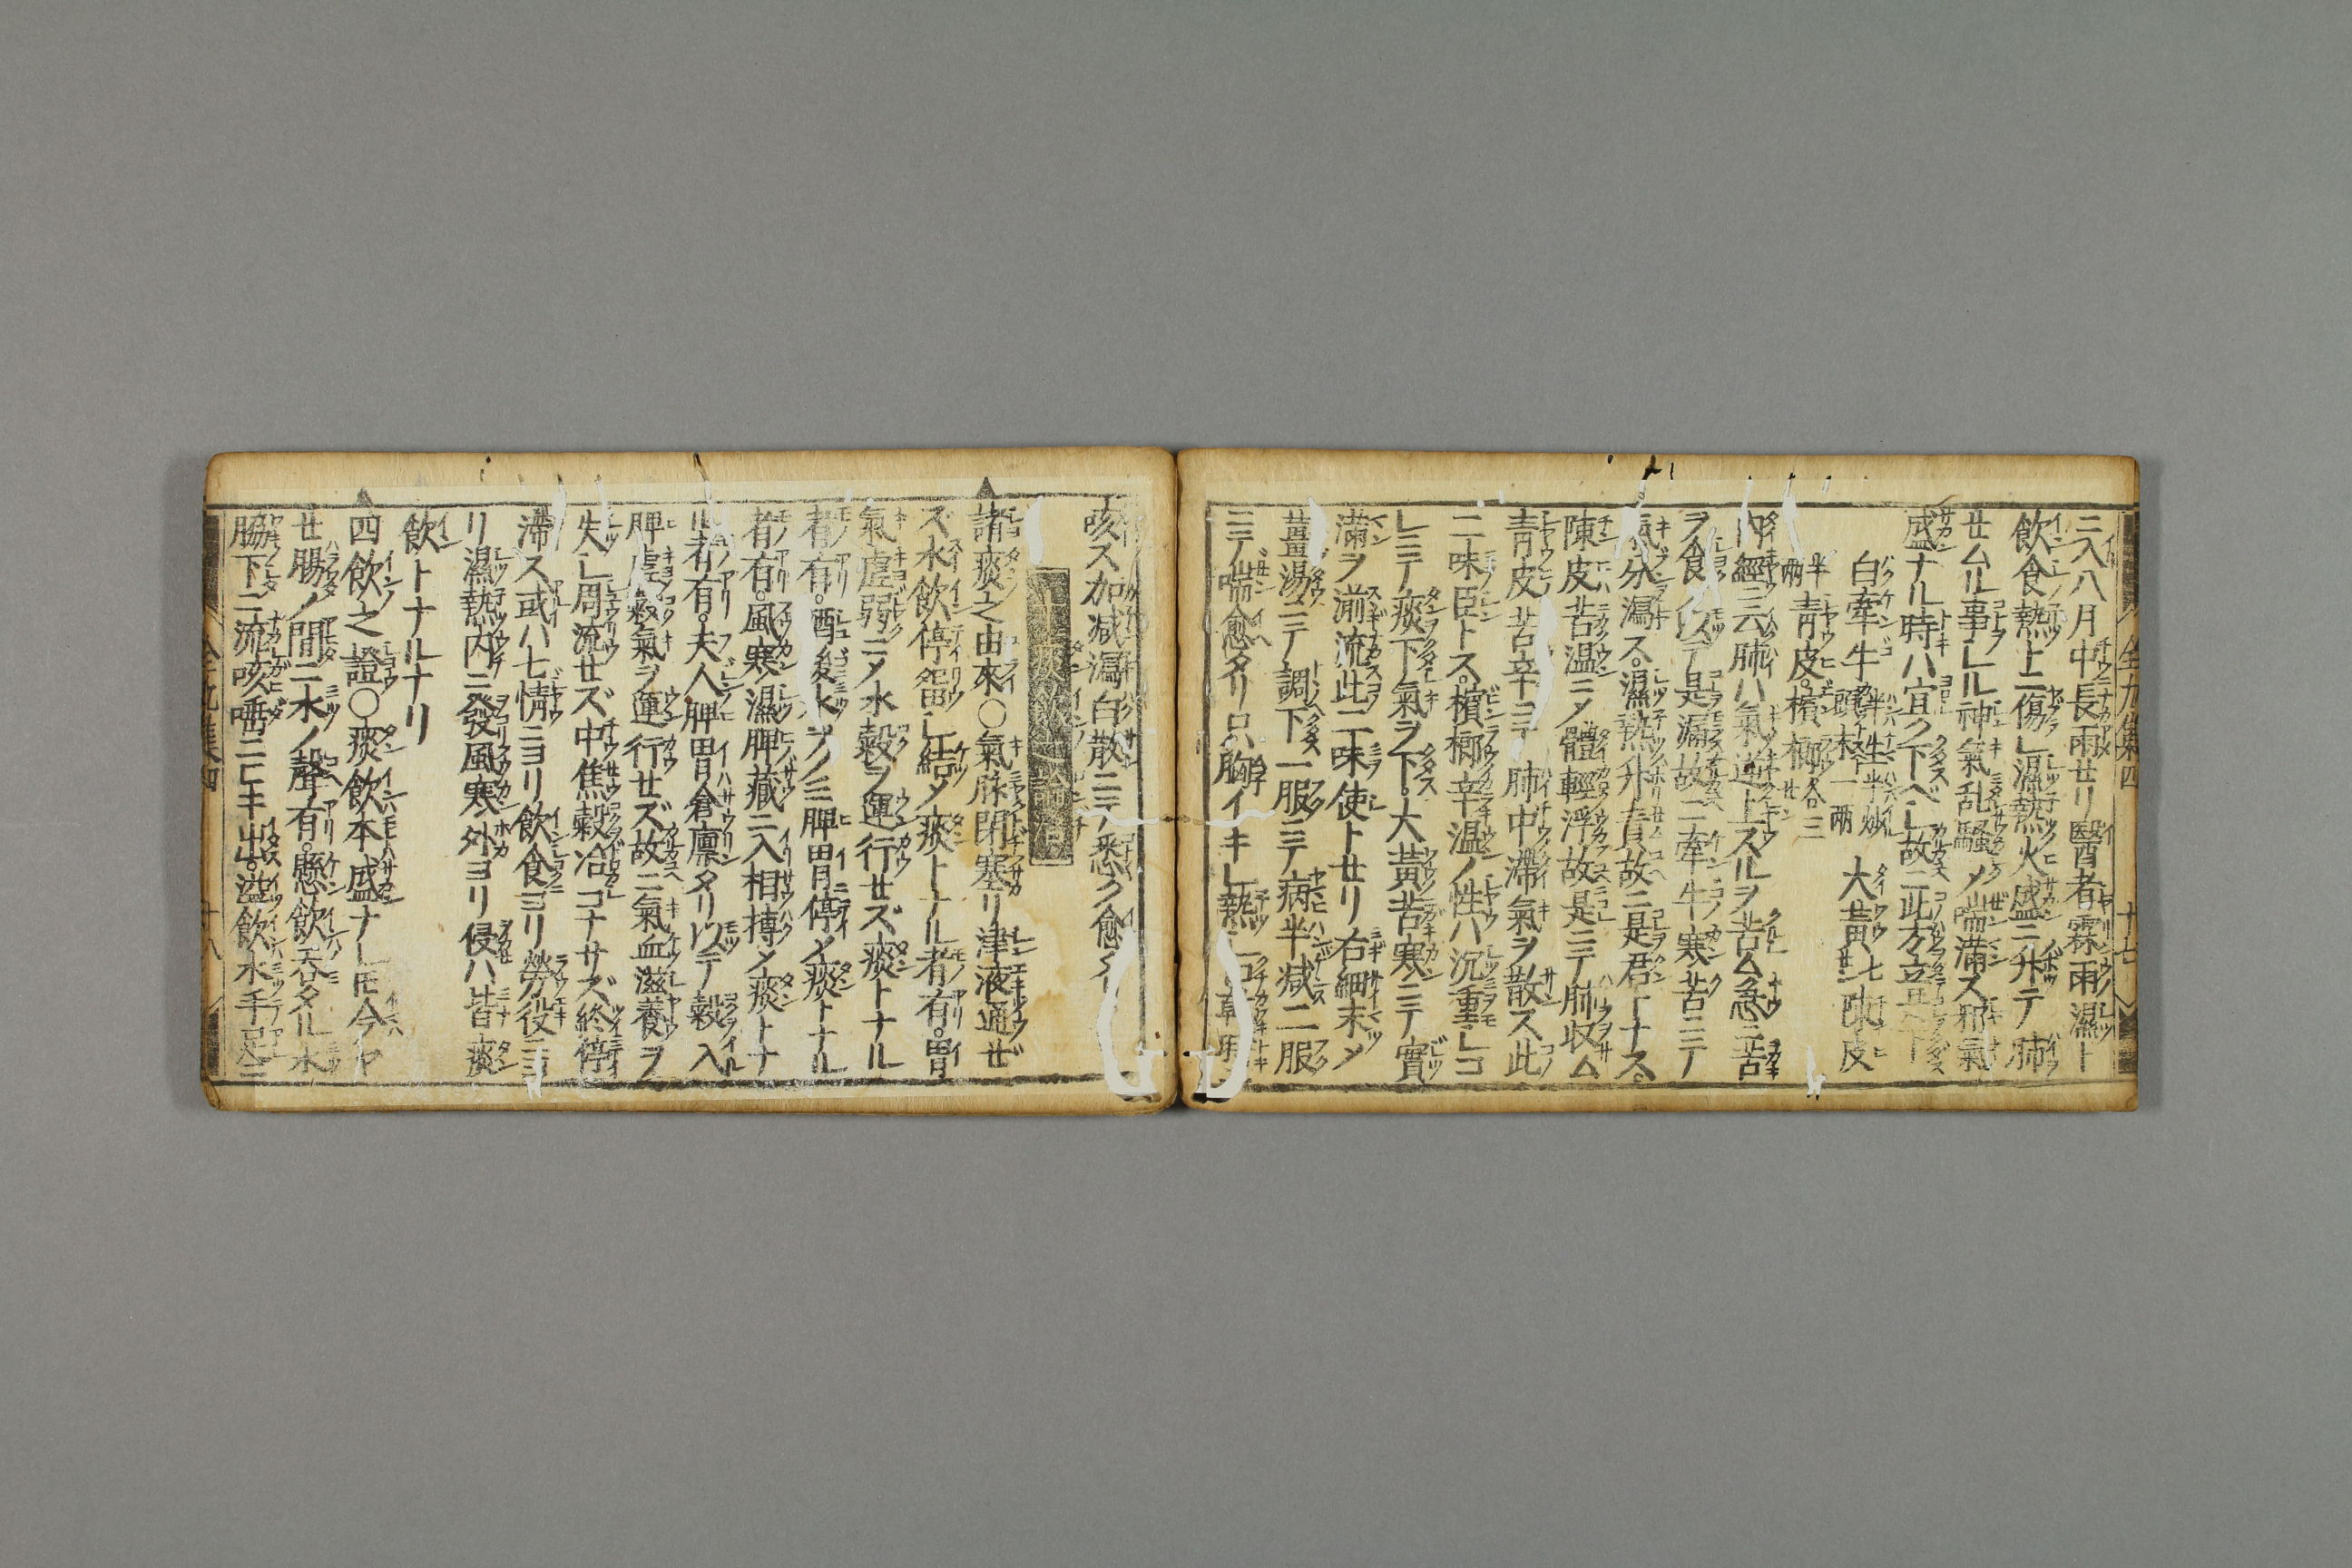 全九集四 十七
ニ入八月中長雨せリ醫者霖雨濕ト
飲食熱上ニ傷レ濕熱火盛ニ升テ肺
せムル事レル神氣乱騷メ喘滿ス邪氣
盛ナル時ハ宜ク下ベレ故ニ此方立
白牽牛 半生半炒頭末一兩 大黃七 陳皮
半兩 青皮。檳榔各三
内經ニ云肺ハ氣逆上スルヲ苦ム急ニ苦
ヲ食 是漏故ニ牽牛寒苦ニテ
氣分瀉ス。濕熱升責故ニ是君トナス。
陳皮苦温ニメ體輕浮故是ニテ肺収ム
青皮苦辛ニテ肺中滯氣ヲ散ス此
二味臣トス。檳榔辛温ノ性ハ沉重レコ
レニテ痰下氣ヲ下。大黃苦寒ニテ實
滿ヲ湔流此二味使トせリ右細末メ
薑湯ニテ調下一服ニテ病半减二服
ニテ喘愈タリ只胸イキレ熱
咳ス加减瀉白散ニテ悉ク愈タ
諸痰之由來〇氣脉閉塞リ津液通せ
ズ水飲停畱レ結メ痰トナル者有。胃
氣虚弱ニメ水穀ヲ運行せズ痰トナル
者有。酒後水ヲノミ脾胃停メ痰トナル
者有。風寒濕脾藏ニ入相搏メ痰トナ
ル者有。夫人脾胃倉廩タリ以テ穀入
脾虚穀氣ヲ運行せズ故ニ氣血滋養ヲ
失レ周流せズ中焦穀冶コナサズ終停
滯ス或ハ七情ニヨリ飲食ヨリ勞役ニヨ
リ濕熱内ニ發風寒外ヨリ侵ハ皆痰
飲トナルナリ
四飲之證〇痰飲本盛ナレ𪜈今ヤ
せ腸ノ間ニ水ノ聲有。懸飲呑タル水
脇下ニ流咳唾ニヒキ出。溢飲水手足ニ